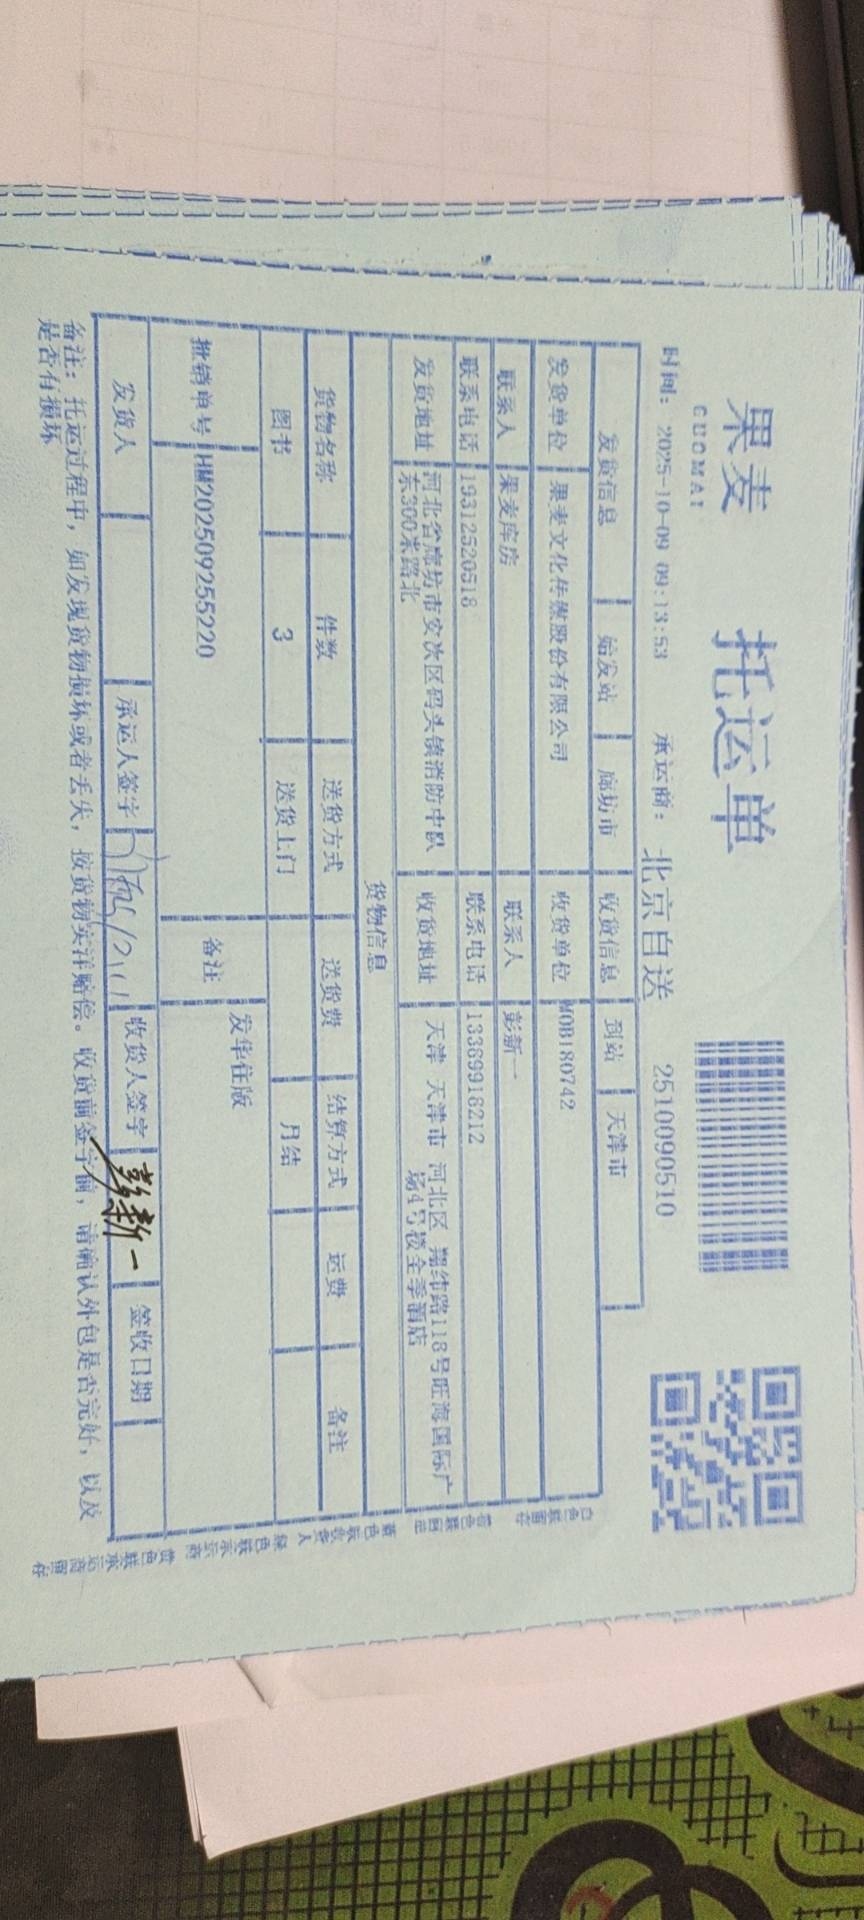 果麦
GUOMAI
托运单
时间: 2025-10-09 09:13:53 承运商: 北京自送 2510090510
发货信息 始发站 廊坊市 收货信息 到站 天津市
发货单位 果麦文化传媒股份有限公司 收货单位 MOB180742
联系人 果麦库房 联系人 彭新一
联系电话 19312520518 联系电话 13389918212
发货地址 河北省廊坊市安次区码头镇消防中队 收货地址 天津 天津市 河北区 翔纬路118号旺海国际广
东300米路北 场4号楼全季酒店
货物信息
货物名称 件数 送货方式 送货费 结算方式 运费 备注
图书 3 送货上门 月结
批销单号 HM202509255220 备注 发华住版
发货人 承运人签字 收货人签字 彭新一 签收日期
备注: 托运过程中, 如发现货物损坏或者丢失, 按货物实洋赔偿。收货前签字前, 请确认外包是否完好, 以及
是否有损坏